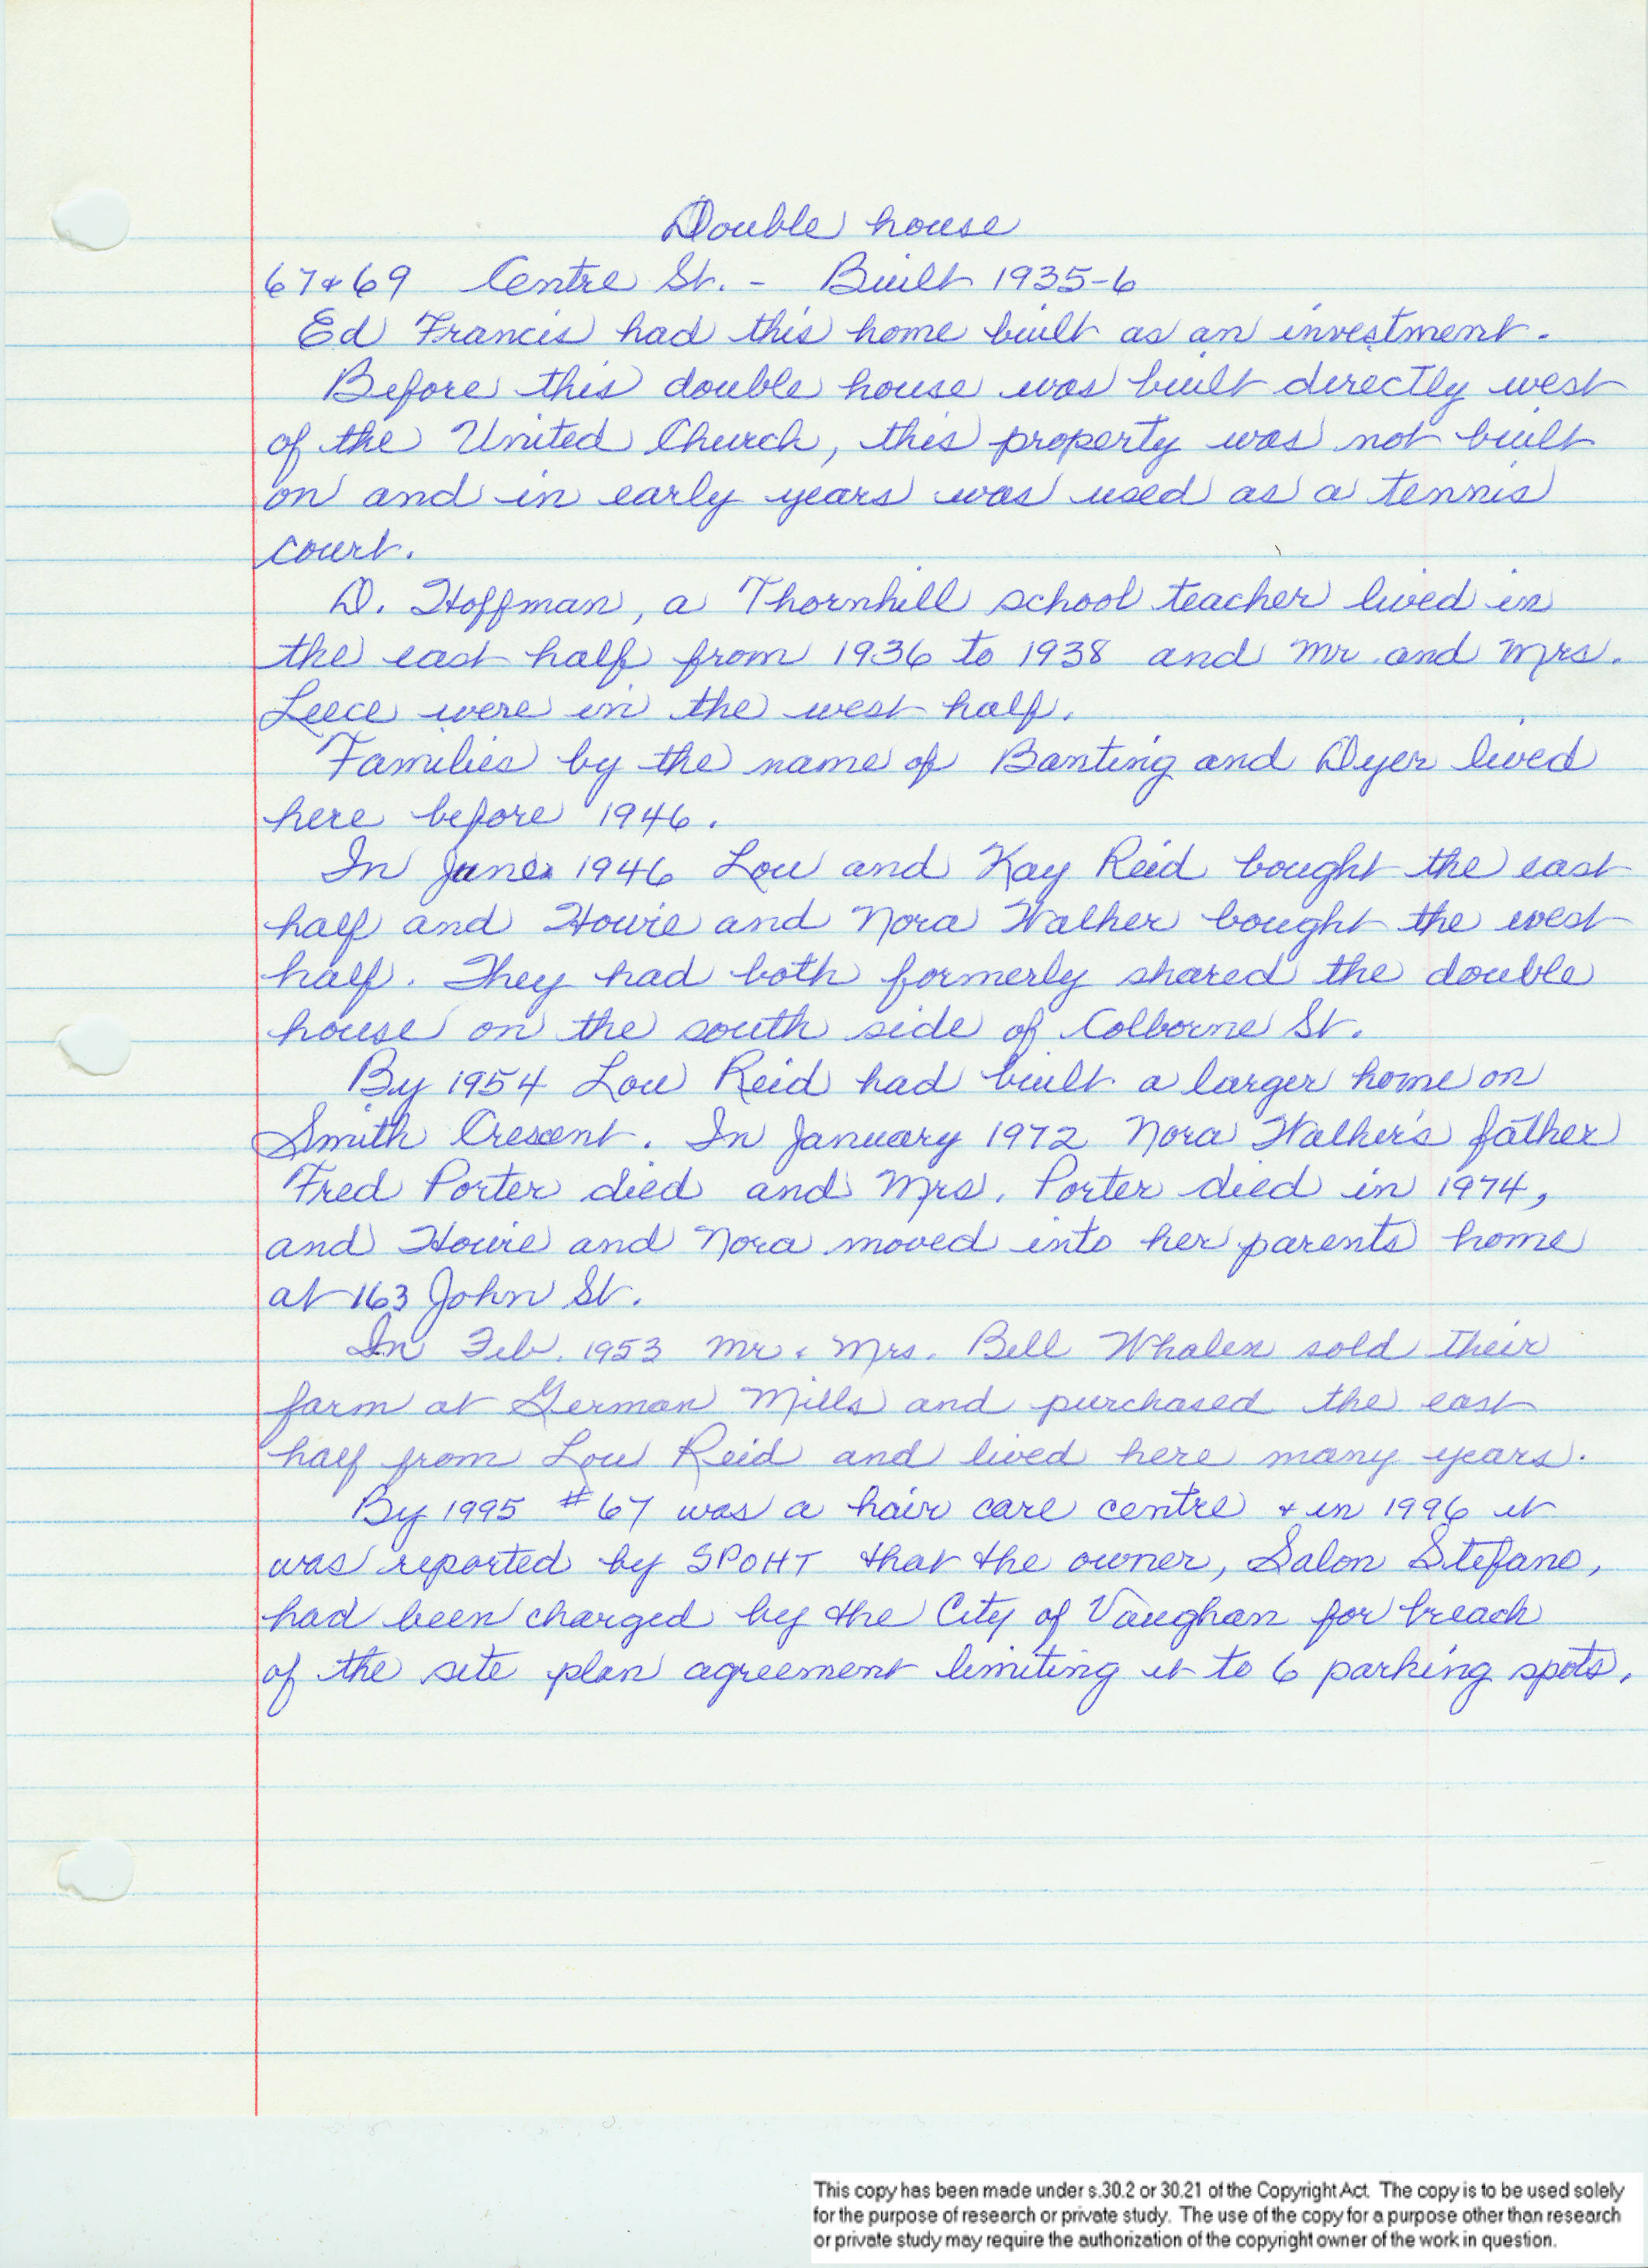 Double house
67 & 69 Centre St. - Built 1935-6
Ed Francis had this home built as an investment.
Before this double house was built directly west
of the United Church, this property was not built
on and in early years was used as a tennis
court.
D. Hoffman, a Thornhill school teacher lived in
the east half from 1936 to 1938 and Mr and Mrs.
Leece were in the west half.
Families by the name of Banting and Dyer lived
here before 1946.
In June 1946 Lou and Kay Reid bought the east
half and Howie and Nora Walker bought the west
half. They had both formerly shared the double
house on the south side of Colborne St.
By 1954 Lou Reid had built a larger home on
Smith Crescent. In January 1972 Nora Walker's father
Fred Porter died and Mrs. Porter died in 1974,
and Howie and Nora moved into her parents home
at 163 John St.
In Feb. 1953 Mr. & Mrs. Bell Whalen sold their
farm at German Mills and purchased the east
half from Lou Reid and lived here many years.
By 1995 #67 was a hair care centre & in 1996 it
was reported by SPOHT that the owner, Salon Stefano,
had been charged by the City of Vaughan for breach
of the site plan agreement limiting it to 6 parking spots.
This copy has been made under s.30.2 or 30.21 of the Copyright Act. The copy is to be used solely
for the purpose of research or private study. The use of the copy for a purpose other than research
or private study may require the authorization of the copyright owner of the work in question.